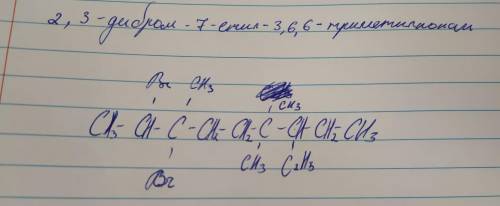 2, 3 - дибром - 7 - етил - 3,6,6 - триметилнонан
Br CH3 CH3
CH3 - CH - C - CH2 - CH2 C - CH CH2 - CH3
Br CH3 C2H5